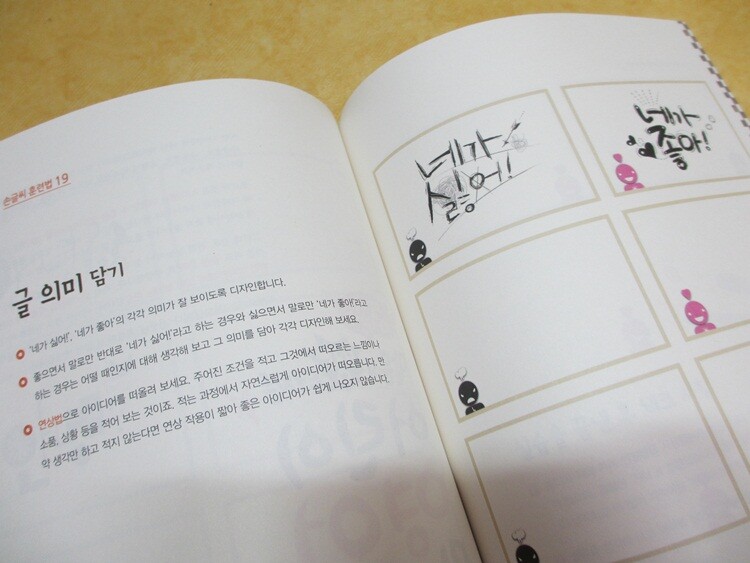 손글씨 훈련법 19
글 의미 담기
'네가 싫어!', '네가 좋아'의 각각 의미가 잘 보이도록 디자인합니다.
좋으면서 말로만 반대로 '네가 싫어!'라고 하는 경우와 싫으면서 말로만 '네가 좋아!'라고
하는 경우는 어떨 때인지에 대해 생각해 보고 그 의미를 담아 각각 디자인해 보세요.
연상법으로 아이디어를 떠올려 보세요. 주어진 조건을 적고 그것에서 떠오르는 느낌이나
소품, 상황 등을 적어 보는 것이죠. 적는 과정에서 자연스럽게 아이디어가 떠오릅니다. 만
약 생각만 하고 적지 않는다면 연상 작용이 짧아 좋은 아이디어가 쉽게 나오지 않습니다.
네가
싫어!
네가
좋아!